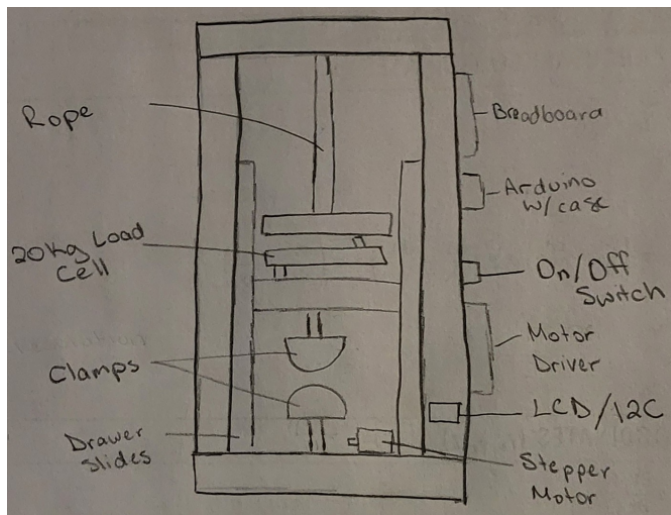 Rope
20kg Load
Cell
Clamps
Drawer
Slides
Breadboard
Arduino
w/ case
On/Off
Switch
Motor
Driver
LCD/I2C
Stepper
Motor